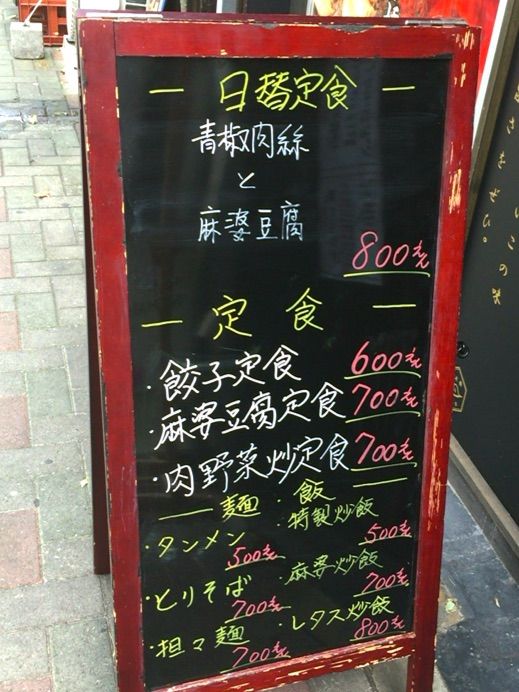 ー 日替定食 ー
青椒肉絲
と
麻婆豆腐
800えん
ー 定食 ー
・餃子定食 600えん
・麻婆豆腐定食 700えん
・肉野菜炒定食 700えん
麺
・タンメン
500えん
・とりそば
700えん
・担々麺
700えん
・飯
・特製炒飯
500えん
・麻婆炒飯
700えん
・レタス炒飯
800えん
この味